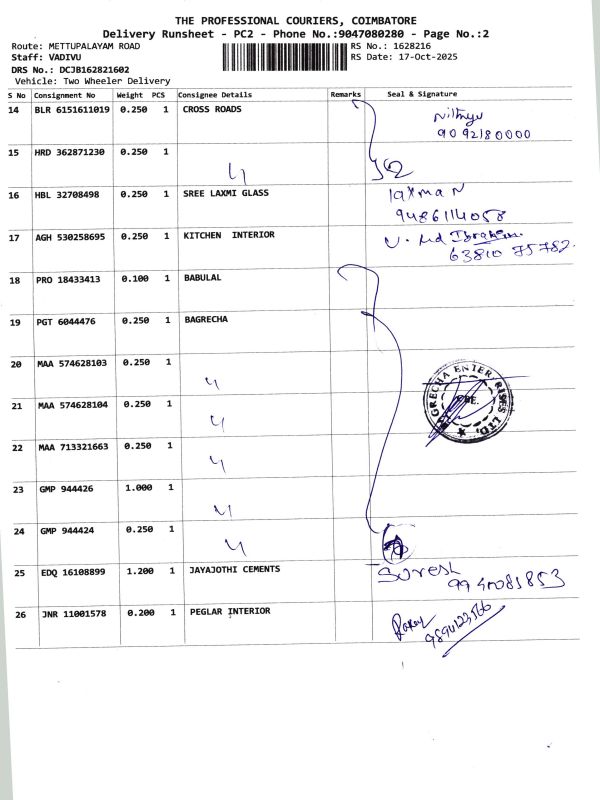 THE PROFESSIONAL COURIERS, COIMBATORE
Delivery Runsheet - PC2 - Phone No.:9047080280 - Page No.:2
Route: METTUPALAYAM ROAD RS No.: 1628216
Staff: VADIVU RS Date: 17-Oct-2025
DRS No.: DCJB162821602
Vehicle: Two Wheeler Delivery
S No Consignment No Weight PCS Consignee Details Remarks Seal & Signature
14 BLR 6151611019 0.250 1 CROSS ROADS
9092180000
15 HRD 362871230 0.250 1
16 HBL 32708498 0.250 1 SREE LAXMI GLASS laxman
9486114058
17 AGH 530258695 0.250 1 KITCHEN INTERIOR Ibrahim
63810 75782.
18 PRO 18433413 0.100 1 BABULAL
19 PGT 6044476 0.250 1 BAGRECHA
20 MAA 574628103 0.250 1
BAGRECHA ENTERPRISES LTD. ★
21 MAA 574628104 0.250 1
22 MAA 713321663 0.250 1
23 GMP 944426 1.000 1
24 GMP 944424 0.250 1
25 EDQ 16108899 1.200 1 JAYAJOTHI CEMENTS Suresh
9940081853
26 JNR 11001578 0.200 1 PEGLAR INTERIOR